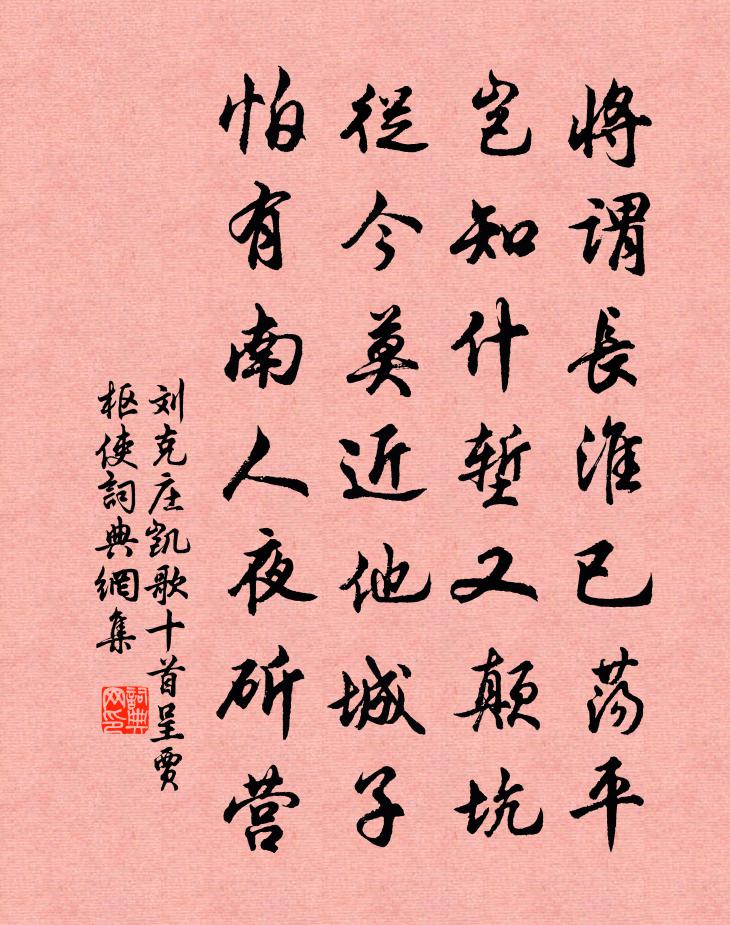 將謂長淮已荡平
岂知什堑又颠坑
從今莫近他城子
怕有南人夜斫营
刘克庄凯歌十首呈贾
枢使詞典網集
詞典
网印